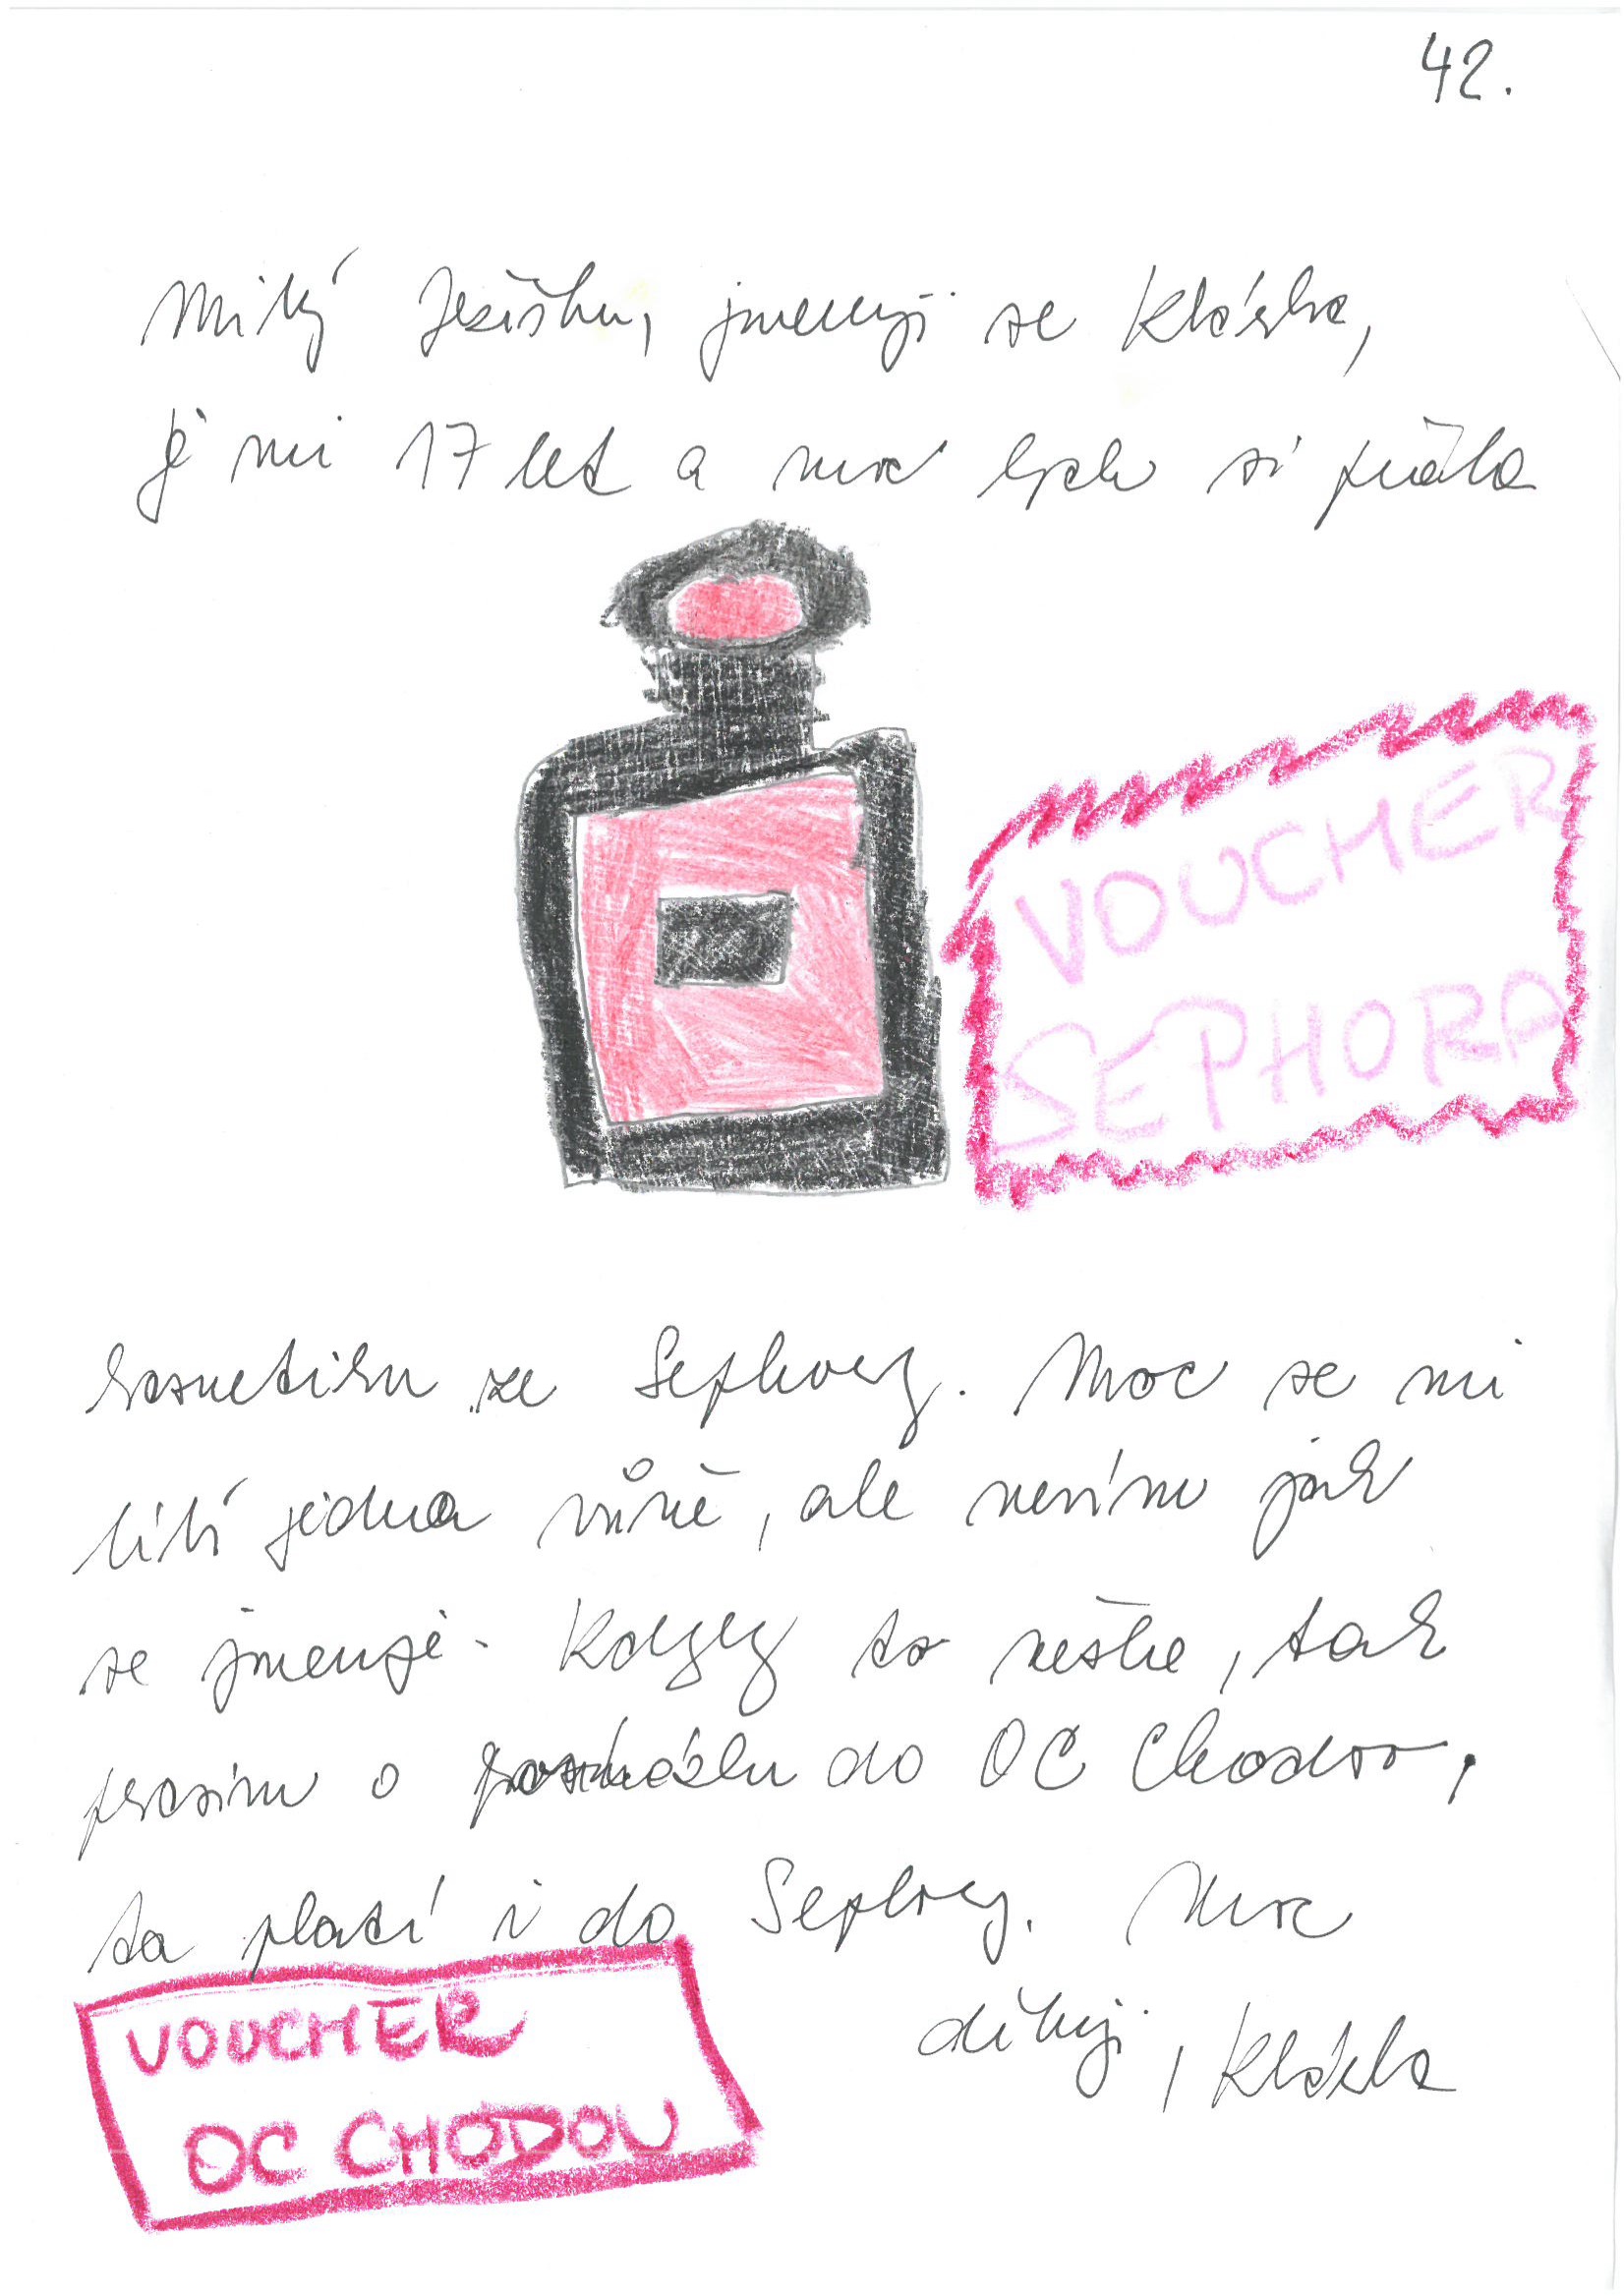 42.
Milý Ježíšku, jmenuji se Klárka,
Je mi 17 let a moc bych si přála
VOUCHER
SEPHORA
kosmetiku ze Sephory. Moc se mi
líbí jedna vůně, ale nevím jak
se jmenuje. Kdyby to nešlo, tak
prosím o poukázku do OC Chodov,
ta platí i do Sephory. Moc
děkuji, Klárka
VOUCHER
OC CHODOV